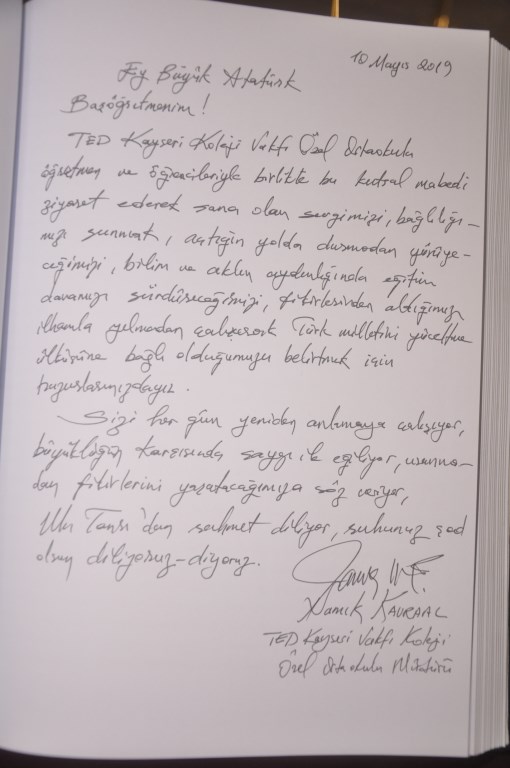 10 Mayıs 2019
Ey Büyük Atatürk
Başöğretmenim!
TED Kayseri Koleji Vakfı Özel Ortaokulu
öğretmen ve öğrencileriyle birlikte bu kutsal mabedi
ziyaret ederek sana olan sevgimizi, bağlılığı-
mızı sunmak, açtığın yolda durmadan yürüye-
ceğimizi, bilim ve aklın aydınlığında eğitim
davamızı sürdüreceğimizi, fikirlerinden aldığımız
ilhamla yılmadan çalışarak Türk milletini yüceltme
ülküsüne bağlı olduğumuzu belirtmek için
huzurlarınızdayız.
Sizi her gün yeniden anlamaya çalışıyor,
büyüklüğün karşısında saygı ile eğiliyor, usanma-
dan fikirlerini yaşatacağımıza söz veriyor,
Ulu Tanrı'dan rahmet diliyor, ruhunuz şad
olsun diliyoruz-diyoruz.
Namık KAVRAAL
TED Kayseri Vakfı Koleji
Özel Ortaokulu Müdürü